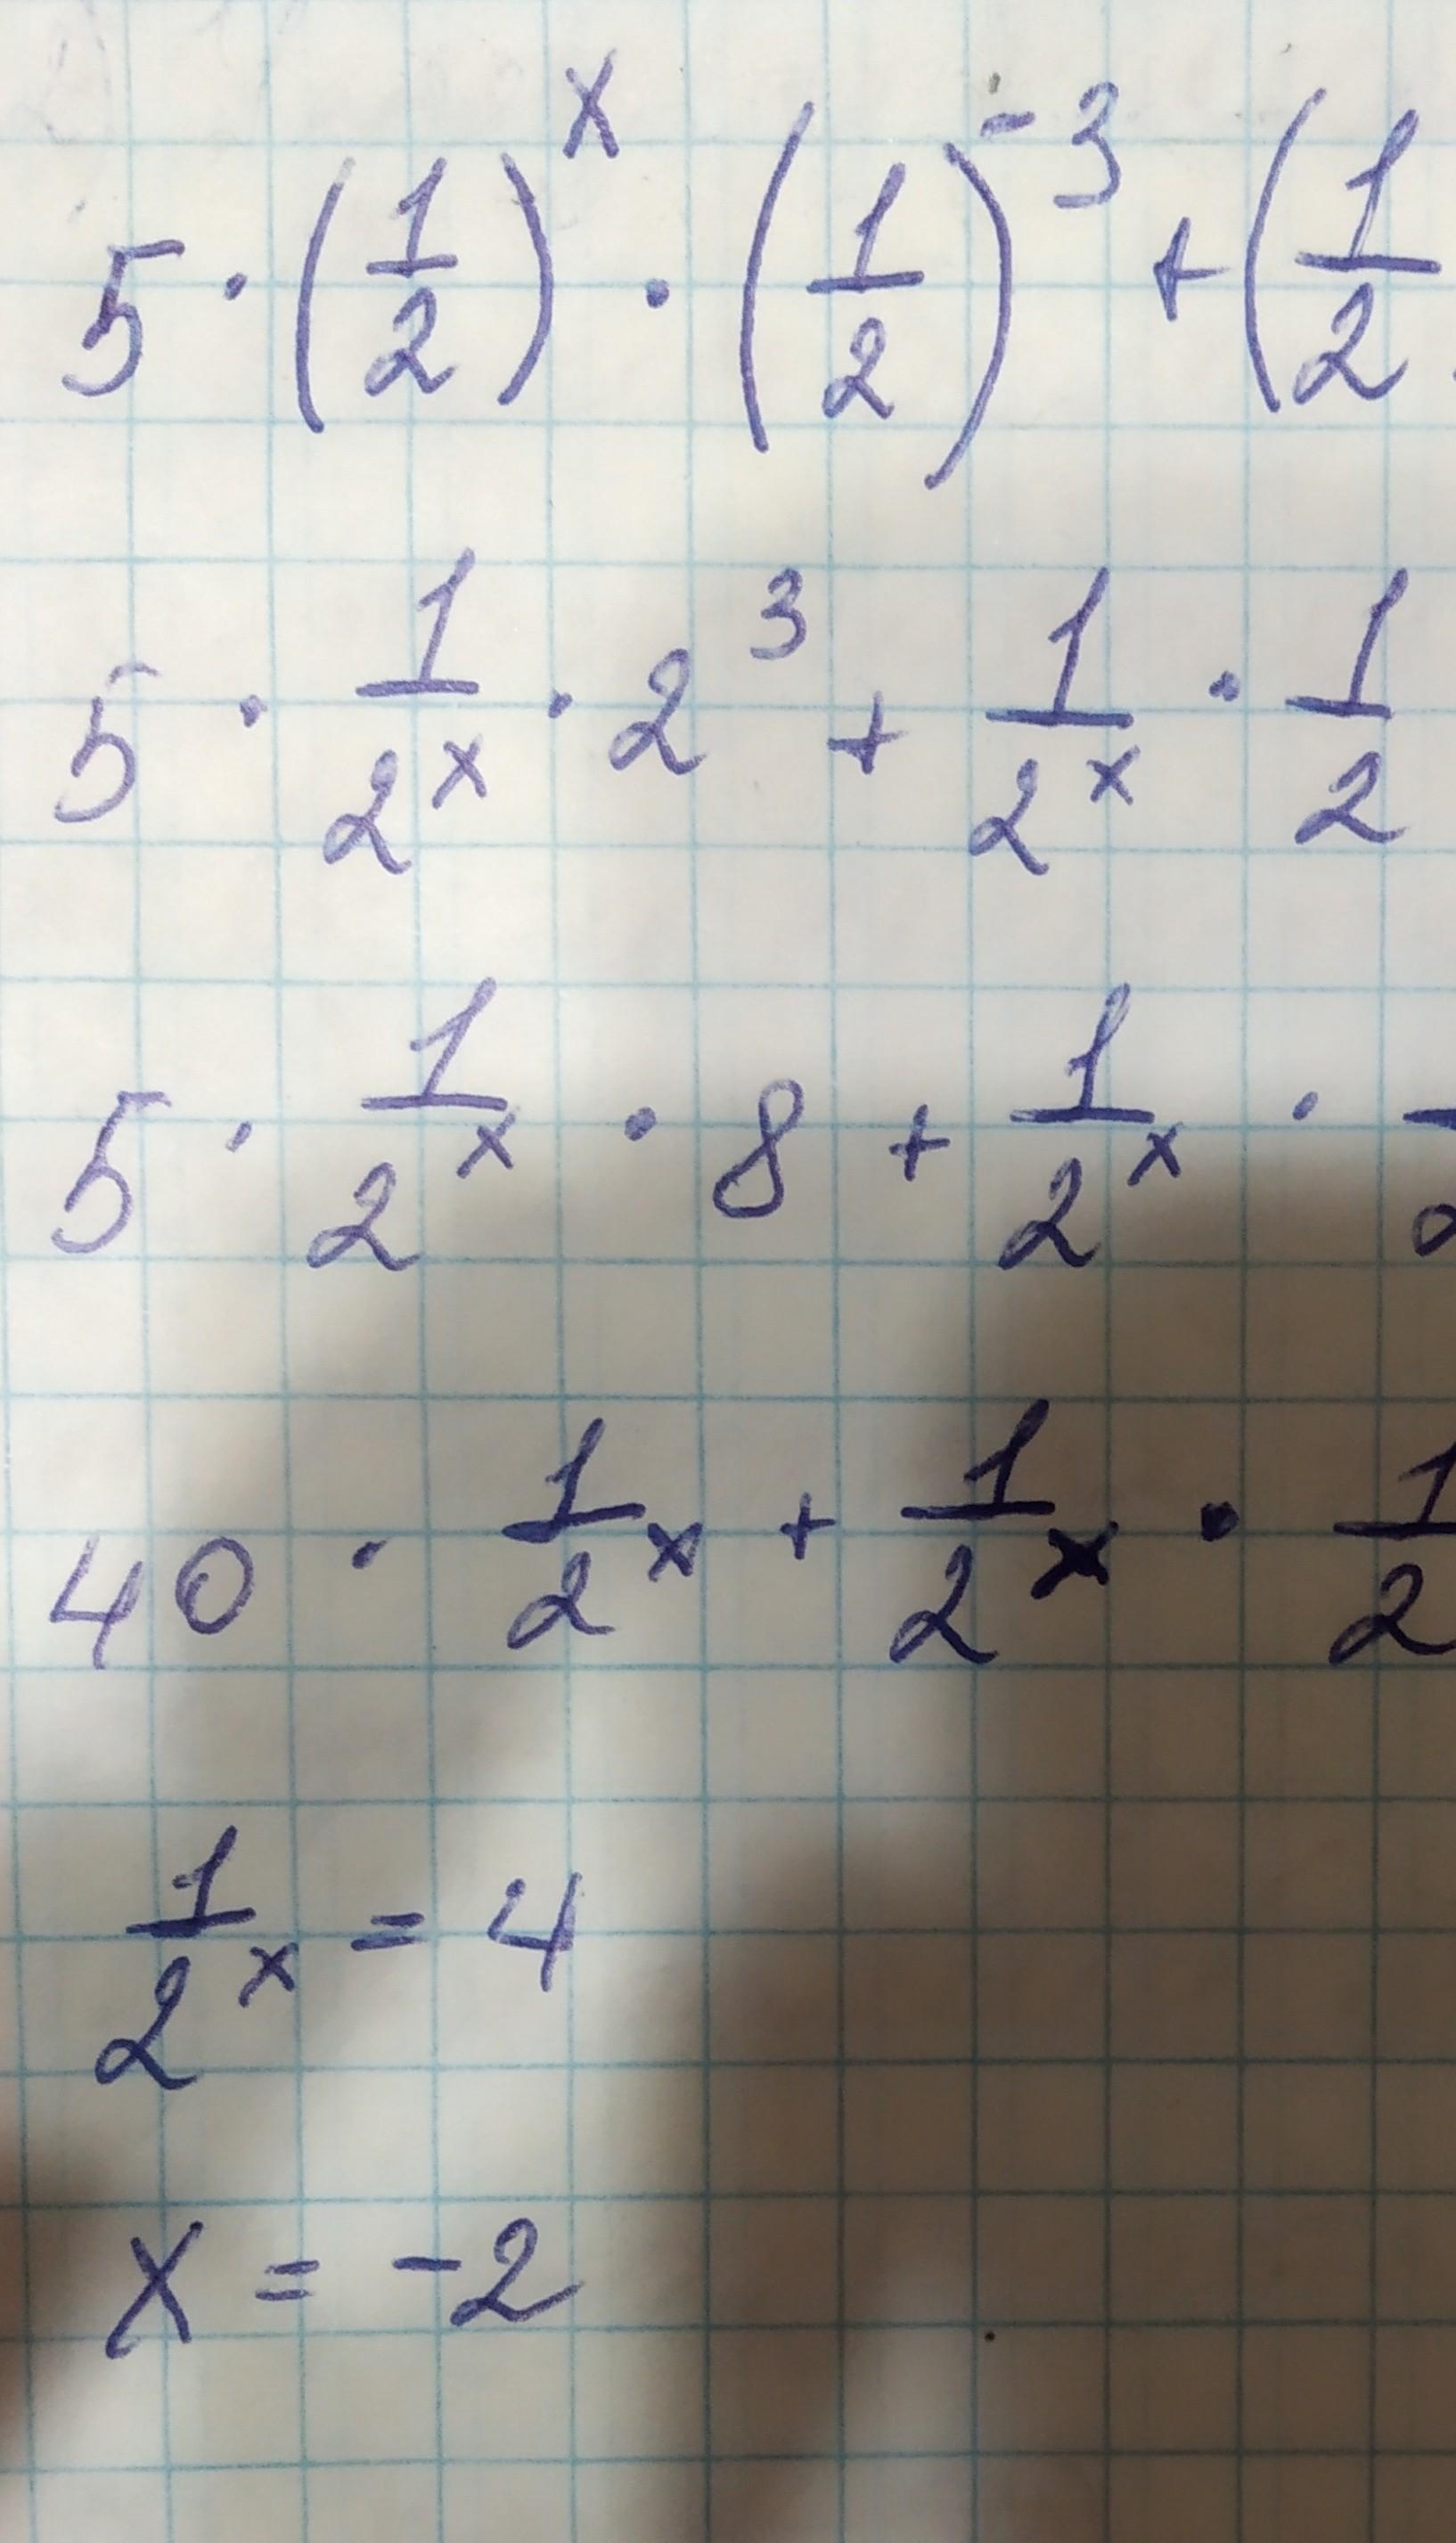 5 · (1/2)^x · (1/2)^-3 + (1/2
5 · 1/2^x · 2^3 + 1/2^x · 1/2
5 · 1/2^x · 8 + 1/2^x ·
40 · 1/2^x + 1/2^x · 1/2
1/2^x = 4
x = -2